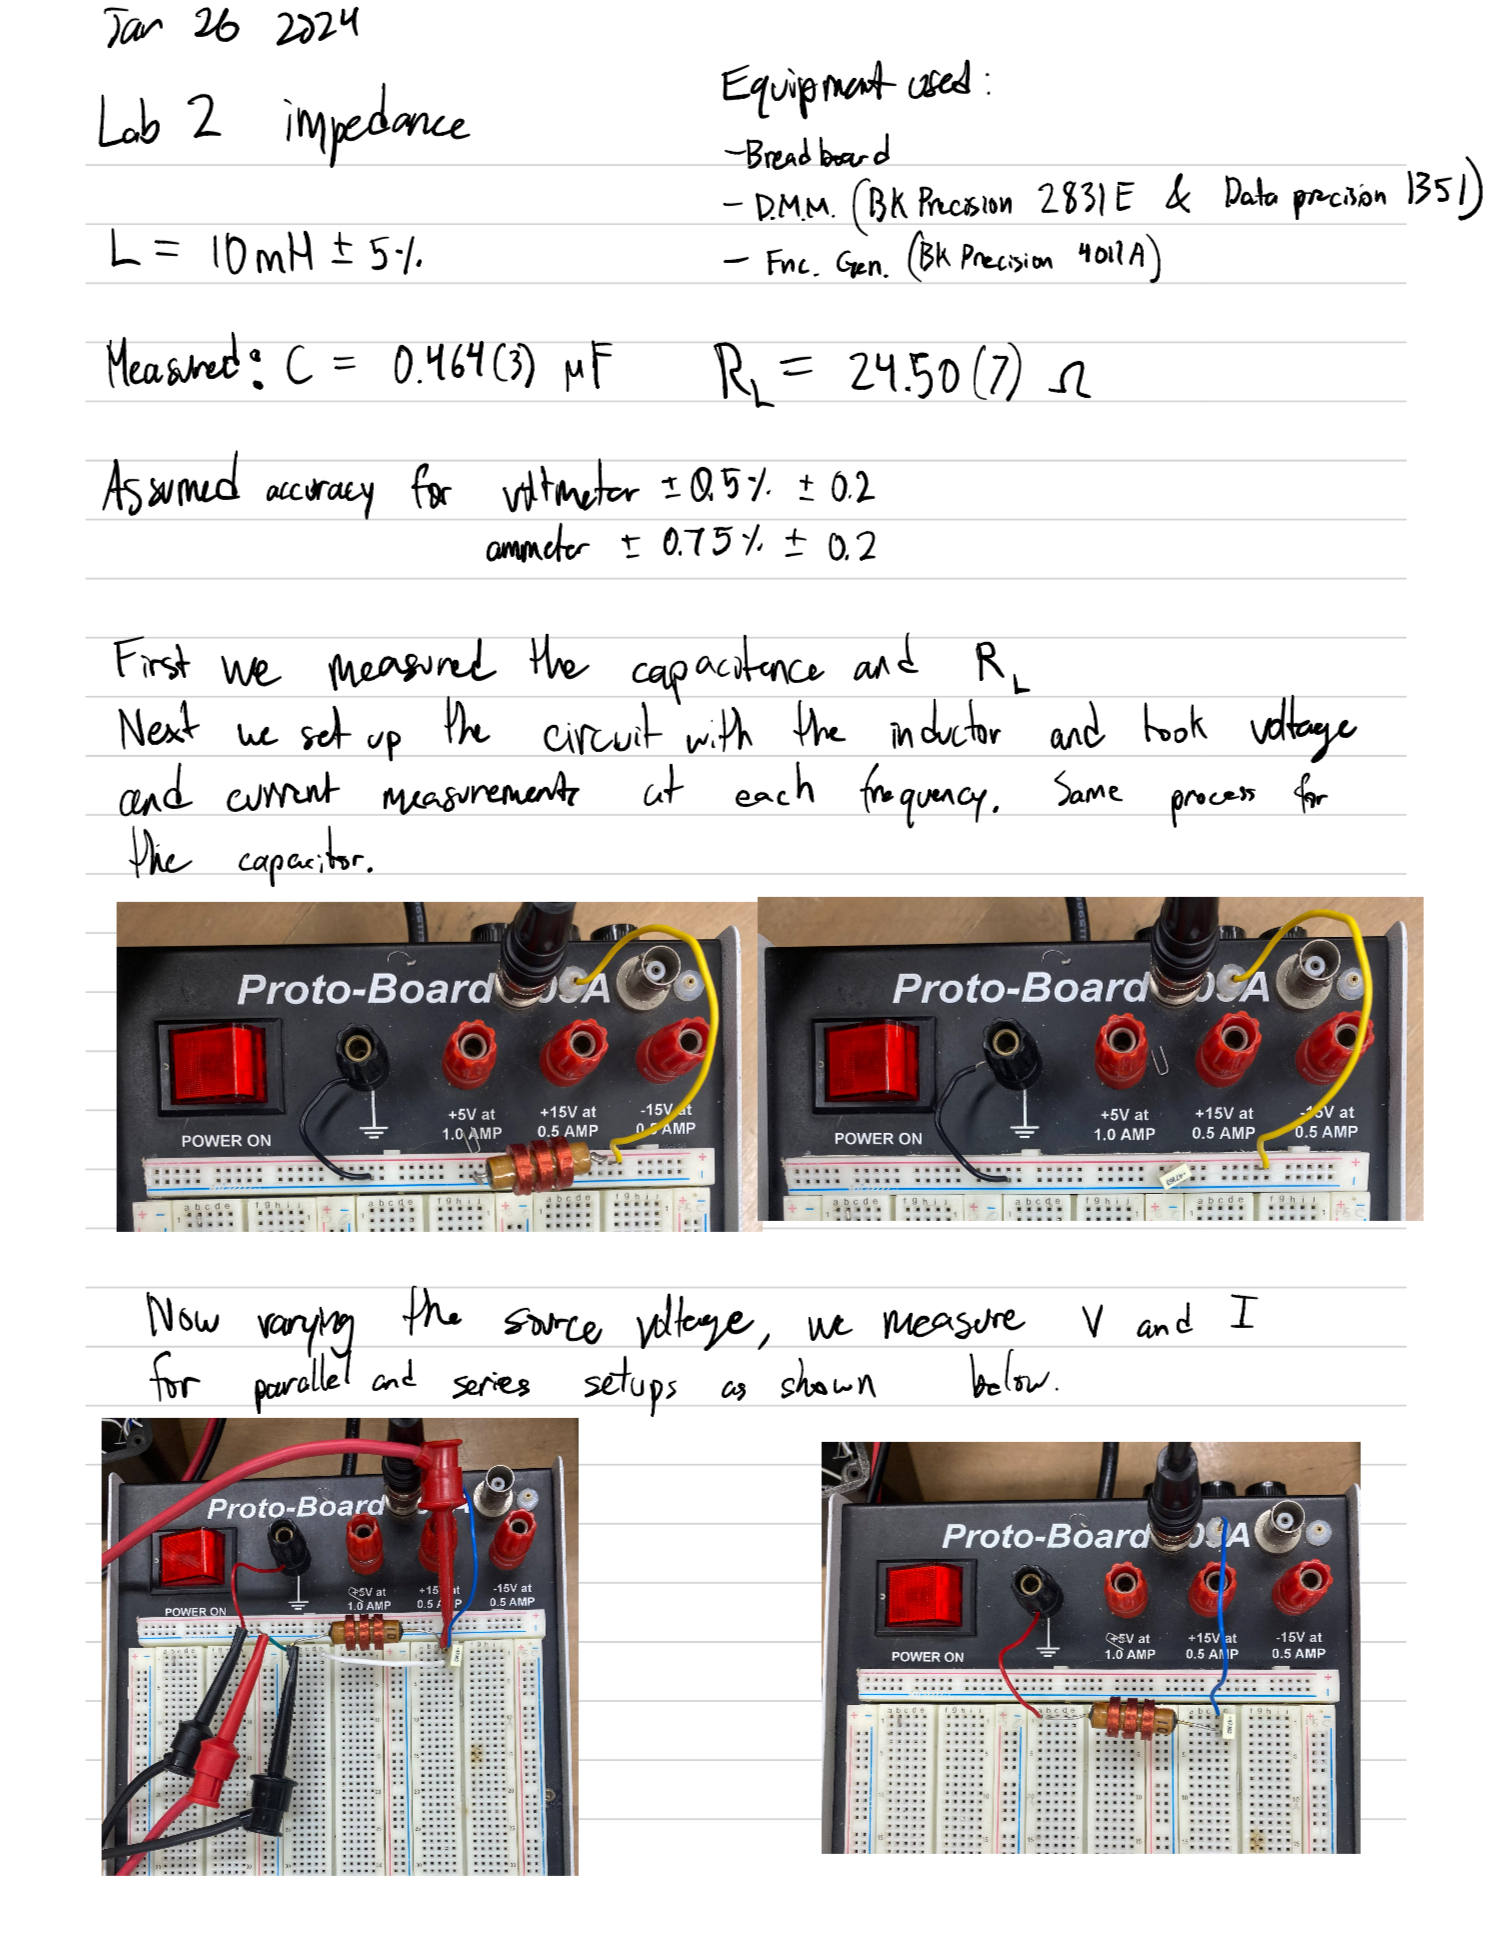 Jan 26 2024
Lab 2 impedance
Equipment used:
- Breadboard
- D.M.M. (BK Precision 2831E & Data precision 1351)
- Fnc. Gen. (BK Precision 4011A)
L = 10mH ± 5%
Measured: C = 0.464(3) μF R_L = 24.50(7) Ω
Assumed accuracy for voltmeter ± 0.5% ± 0.2
ammeter ± 0.75% ± 0.2
First we measured the capacitence and R_L
Next we set up the circuit with the inductor and took voltage
and current measurements at each frequency. Same process for
the capacitor.
Proto-Board 03A
POWER ON
+5V at
1.0 AMP
+15V at
0.5 AMP
-15V at
0.5 AMP
Proto-Board 03A
POWER ON
+5V at
1.0 AMP
+15V at
0.5 AMP
-15V at
0.5 AMP
Now varying the source voltage, we measure V and I
for parallel and series setups as shown below.
Proto-Board
POWER ON
+5V at
1.0 AMP
+15V at
0.5 AMP
-15V at
0.5 AMP
Proto-Board 03A
POWER ON
+5V at
1.0 AMP
+15V at
0.5 AMP
-15V at
0.5 AMP